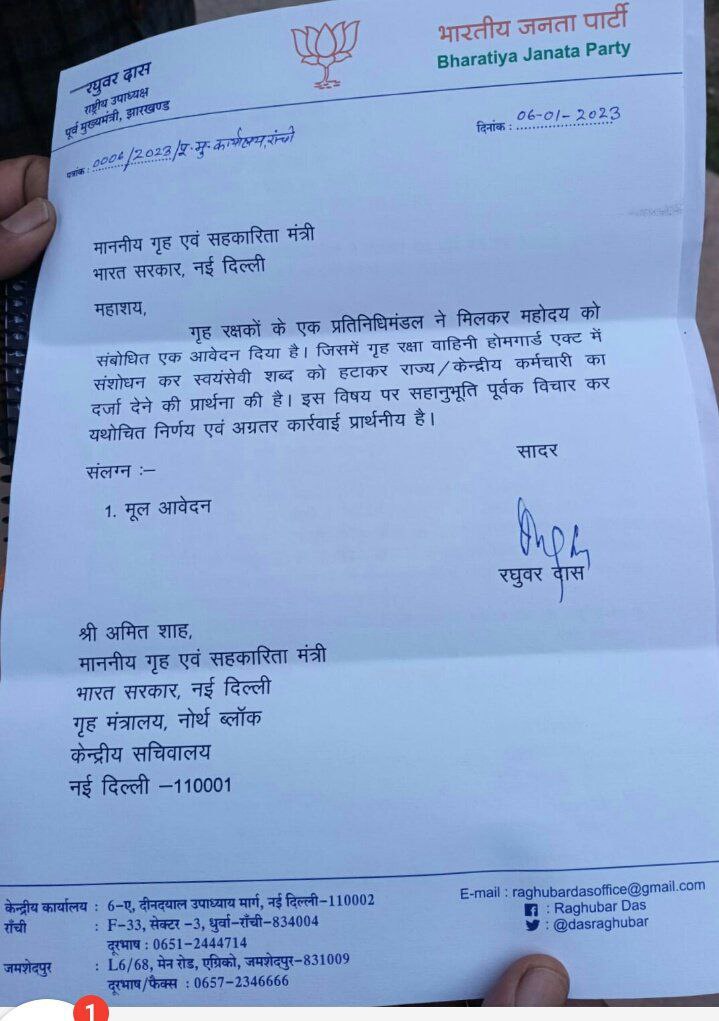 रघुवर दास
राष्ट्रीय उपाध्यक्ष
पूर्व मुख्यमंत्री, झारखण्ड
भारतीय जनता पार्टी
Bharatiya Janata Party
पत्रांक : 0006/2023/पू.मु. कार्यालय, रांची
दिनांक : 06-01-2023
माननीय गृह एवं सहकारिता मंत्री
भारत सरकार, नई दिल्ली
महाशय,
गृह रक्षकों के एक प्रतिनिधिमंडल ने मिलकर महोदय को
संबोधित एक आवेदन दिया है। जिसमें गृह रक्षा वाहिनी होमगार्ड एक्ट में
संशोधन कर स्वयंसेवी शब्द को हटाकर राज्य/केन्द्रीय कर्मचारी का
दर्जा देने की प्रार्थना की है। इस विषय पर सहानुभूति पूर्वक विचार कर
यथोचित निर्णय एवं अग्रतर कार्रवाई प्रार्थनीय है।
सादर
संलग्न :–
1. मूल आवेदन
रघुवर दास
श्री अमित शाह,
माननीय गृह एवं सहकारिता मंत्री
भारत सरकार, नई दिल्ली
गृह मंत्रालय, नोर्थ ब्लॉक
केन्द्रीय सचिवालय
नई दिल्ली –110001
केन्द्रीय कार्यालय : 6-ए, दीनदयाल उपाध्याय मार्ग, नई दिल्ली-110002
राँची : F-33, सेक्टर -3, धुर्वा-राँची-834004
दूरभाष : 0651-2444714
जमशेदपुर : L6/68, मेन रोड, एग्रिको, जमशेदपुर-831009
दूरभाष/फैक्स : 0657-2346666
E-mail : raghubardasoffice@gmail.com
: Raghubar Das
: @dasraghubar
1